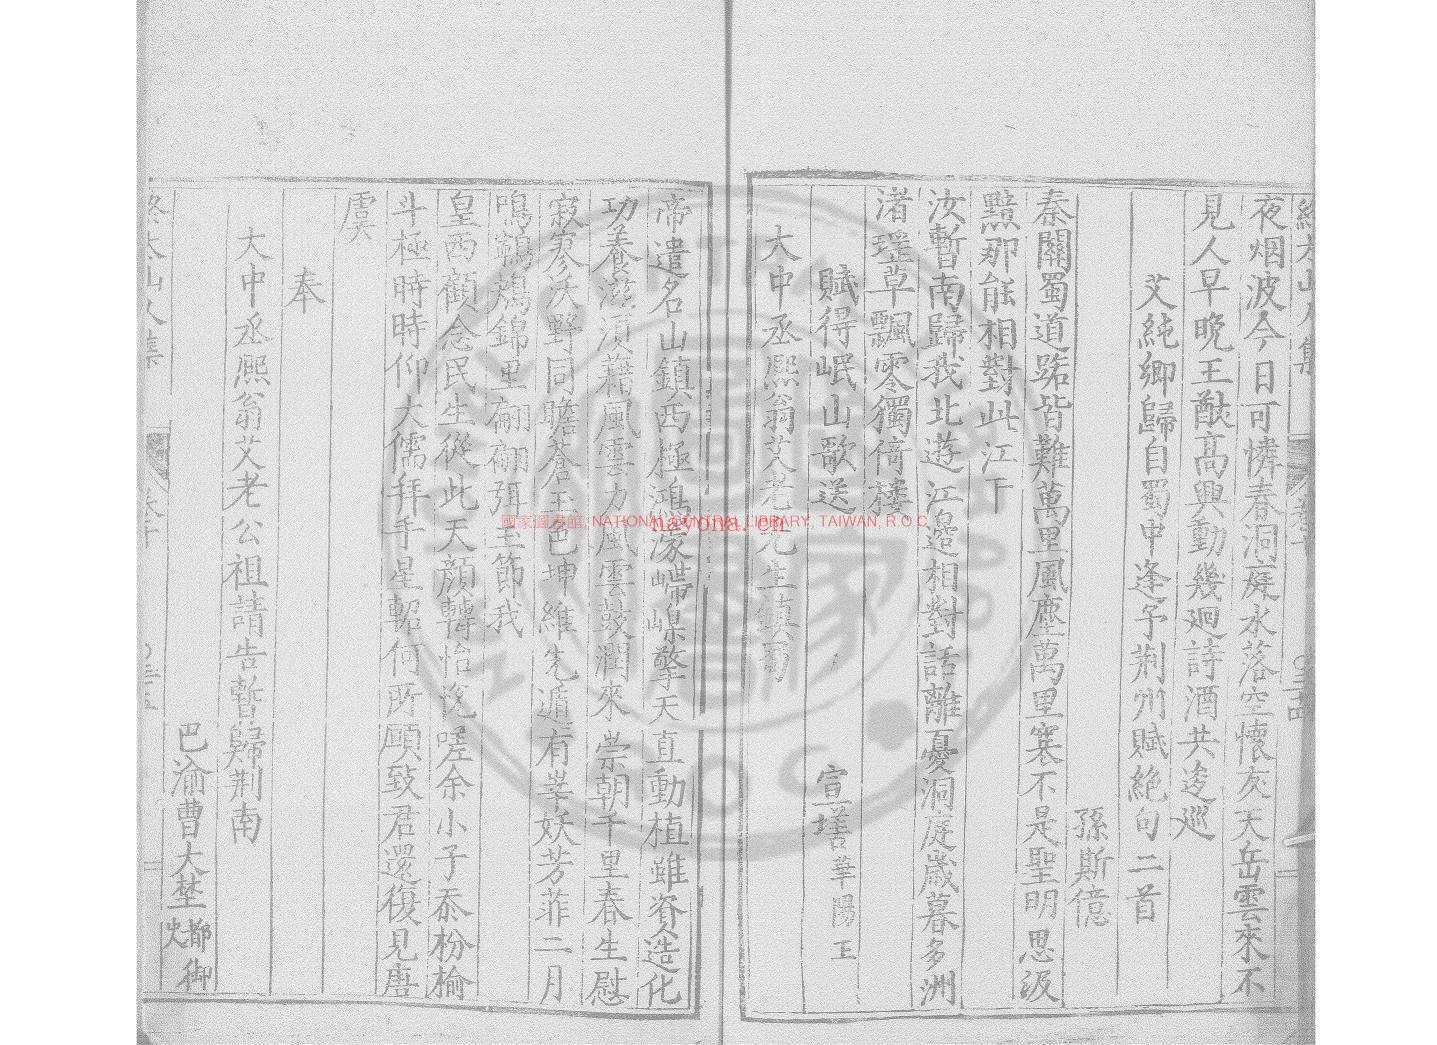 夜烟波今日可憐春洞庭水落空懷灰天岳雲來不
見人早晚王猷髙興動幾廻詩酒共逡巡
艾純卿歸自蜀中逢予荆州賦絶句二首
孫斯億
秦關蜀道路皆難萬里風塵萬里寒不是聖明思汲
黯那能相對此江干
汝暫南歸我北遊江邊相對話離憂洞庭歲暮多洲
渚瑶草飄零獨倚樓
賦得岷山歌送
宣墡華陽王
大中丞熙翁艾老先生鎮蜀
帝遣名山鎮西極鴻濛嵽嵲擎天直動植雖資造化
功養滋須藉風雲力風雲鼓潤來崇朝千里春生慰
寂寥沃野同瞻蒼玉色坤維先遁有莘妖芳菲二月
鳴鶗鴂錦里翩翩弭玉節我
皇西顧念民生從此天顔轉怡悅嗟余小子忝枌榆
斗極時時仰大儒拜手星軺何所願致君還復見唐
虞
奉
大中丞熙翁艾老公祖請告暫歸荆南
巴渝曹大埜都御史
終太山人集
NATIONAL CENTRAL LIBRARY, TAIWAN, R.O.C
nayona.cn